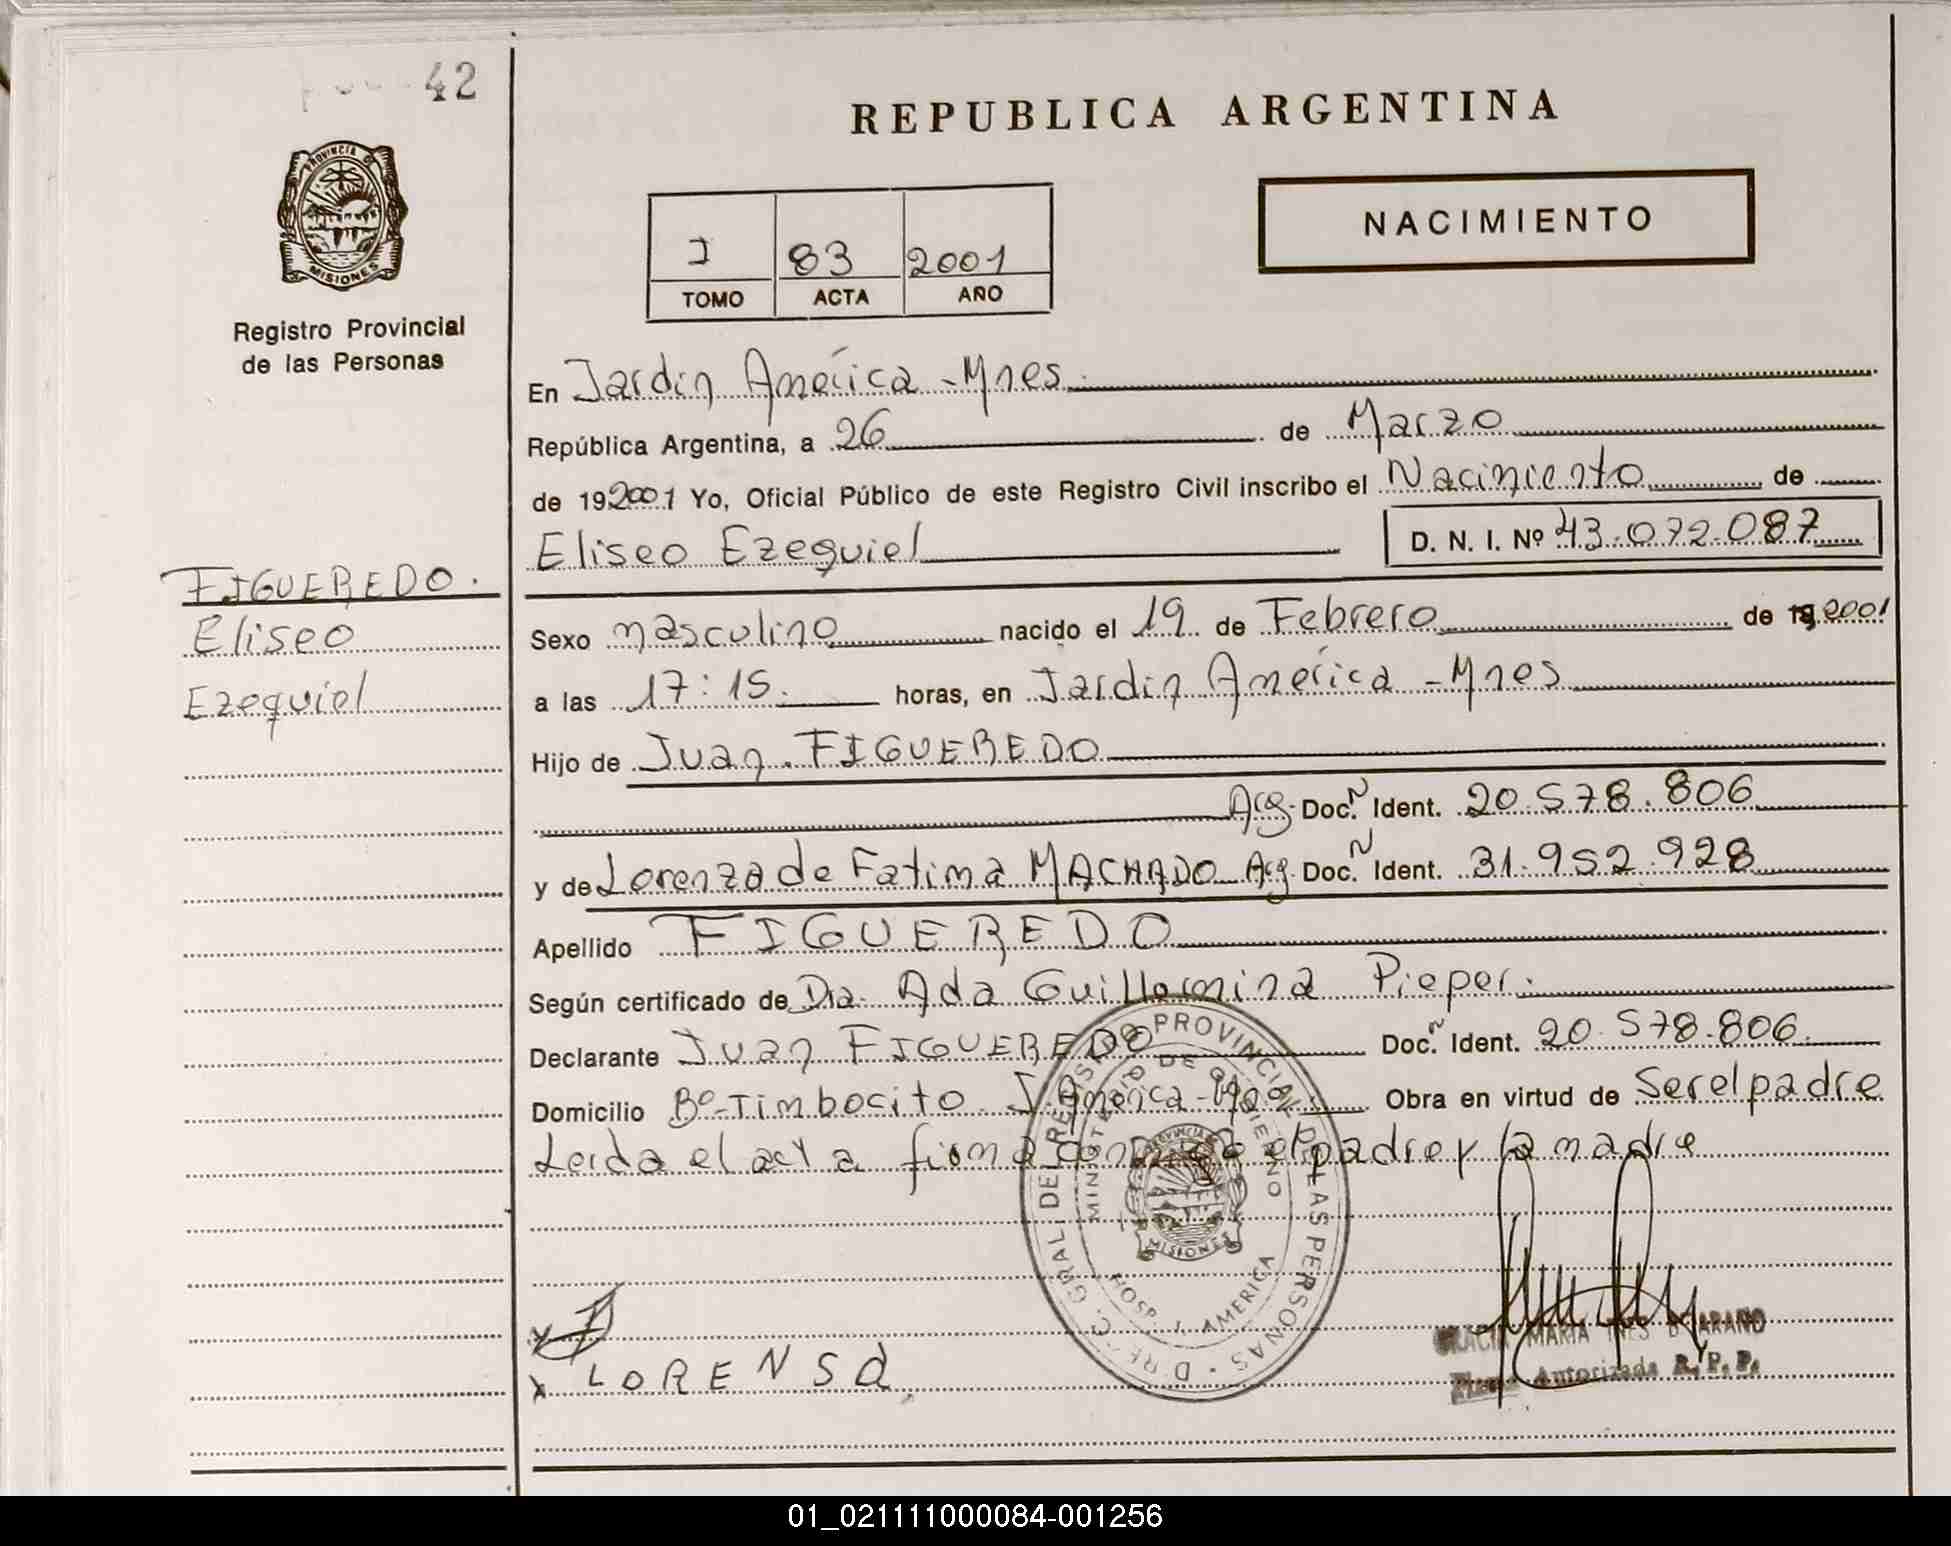 42
PROVINCIA DE
MISIONES
Registro Provincial
de las Personas
FIGUEREDO.
Eliseo
Ezequiel
REPUBLICA ARGENTINA
NACIMIENTO
I 83 2001
TOMO ACTA AÑO
En Jardín América - Mnes.
República Argentina, a 26 de Marzo
de 192001 Yo, Oficial Público de este Registro Civil inscribo el Nacimiento de
Eliseo Ezequiel D. N. I. Nº 43.072.087
Sexo masculino nacido el 19 de Febrero de 19 2001
a las 17:15. horas, en Jardín América - Mnes
Hijo de Juan. FIGUEREDO
Arg. Doc. N Ident. 20.578.806
y de Lorenza de Fatima MACHADO Arg. Doc. N Ident. 31.952.928
Apellido FIGUEREDO
Según certificado de Dra. Ada Guillermina Pieper.
Declarante Juan FIGUEREDO Doc. N Ident. 20.578.806.
Domicilio Bº Timbocito J. América - Mnes Obra en virtud de Ser el padre
Leida el acta firma conmigo el padre y la madre
DIREC. GRAL. DEL REGISTRO PROVINCIAL DE LAS PERSONAS
MINISTERIO DE GOBIERNO
PROVINCIA DE
MISIONES
HOSP. J. AMERICA
x
x LORENSA
GRACIA MARIA INES D
Firma Autorizada R. P. P.
01_021111000084-001256